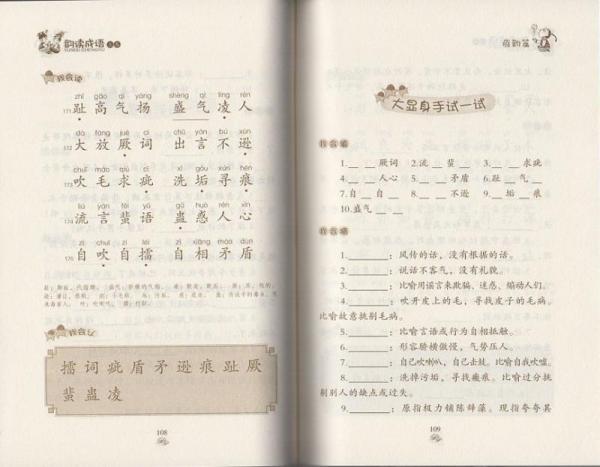 韵读成语
我会读
zhǐ gāo qì yáng shèng qì líng rén
171 趾高气扬 盛气凌人
dà fàng jué cí chū yán bú xùn
172 大放厥词 出言不逊
chuī máo qiú cī xǐ gòu xún hén
173 吹毛求疵 洗垢寻痕
liú yán fēi yǔ gǔ huò rén xīn
174 流言蜚语 蛊惑人心
zì chuī zì léi zì xiāng máo dùn
175 自吹自擂 自相矛盾
我会写
擂 词 疵 盾 矛 逊 痕 趾 厥
蜚 蛊 凌
108
大显身手试一试
我会填
1.__ __厥词 2.流__蜚__ 3.__ __求疵
4.__ __人心 5.__ __矛盾 6.趾__气__
7.自__自__ 8.__ __不逊 9.__垢__痕
10.盛气__ __
1.______：风传的话，没有根据的话。
2.______：说话不客气，没有礼貌。
3.______：比喻用谣言来欺骗、迷惑、煽动人们。
4.______：吹开皮上的毛，寻找皮子的毛病。
比喻故意挑剔毛病。
5.______：比喻言语或行为自相抵触。
6.______：形容骄横傲慢，气势压人。
7.______：自己吹喇叭，自己击鼓。比喻自我吹嘘。
8.______：洗掉污垢，寻找瘢痕。比喻过分挑
剔别人的缺点或过失。
9.______：原指极力铺陈辞藻。现指夸夸其
109